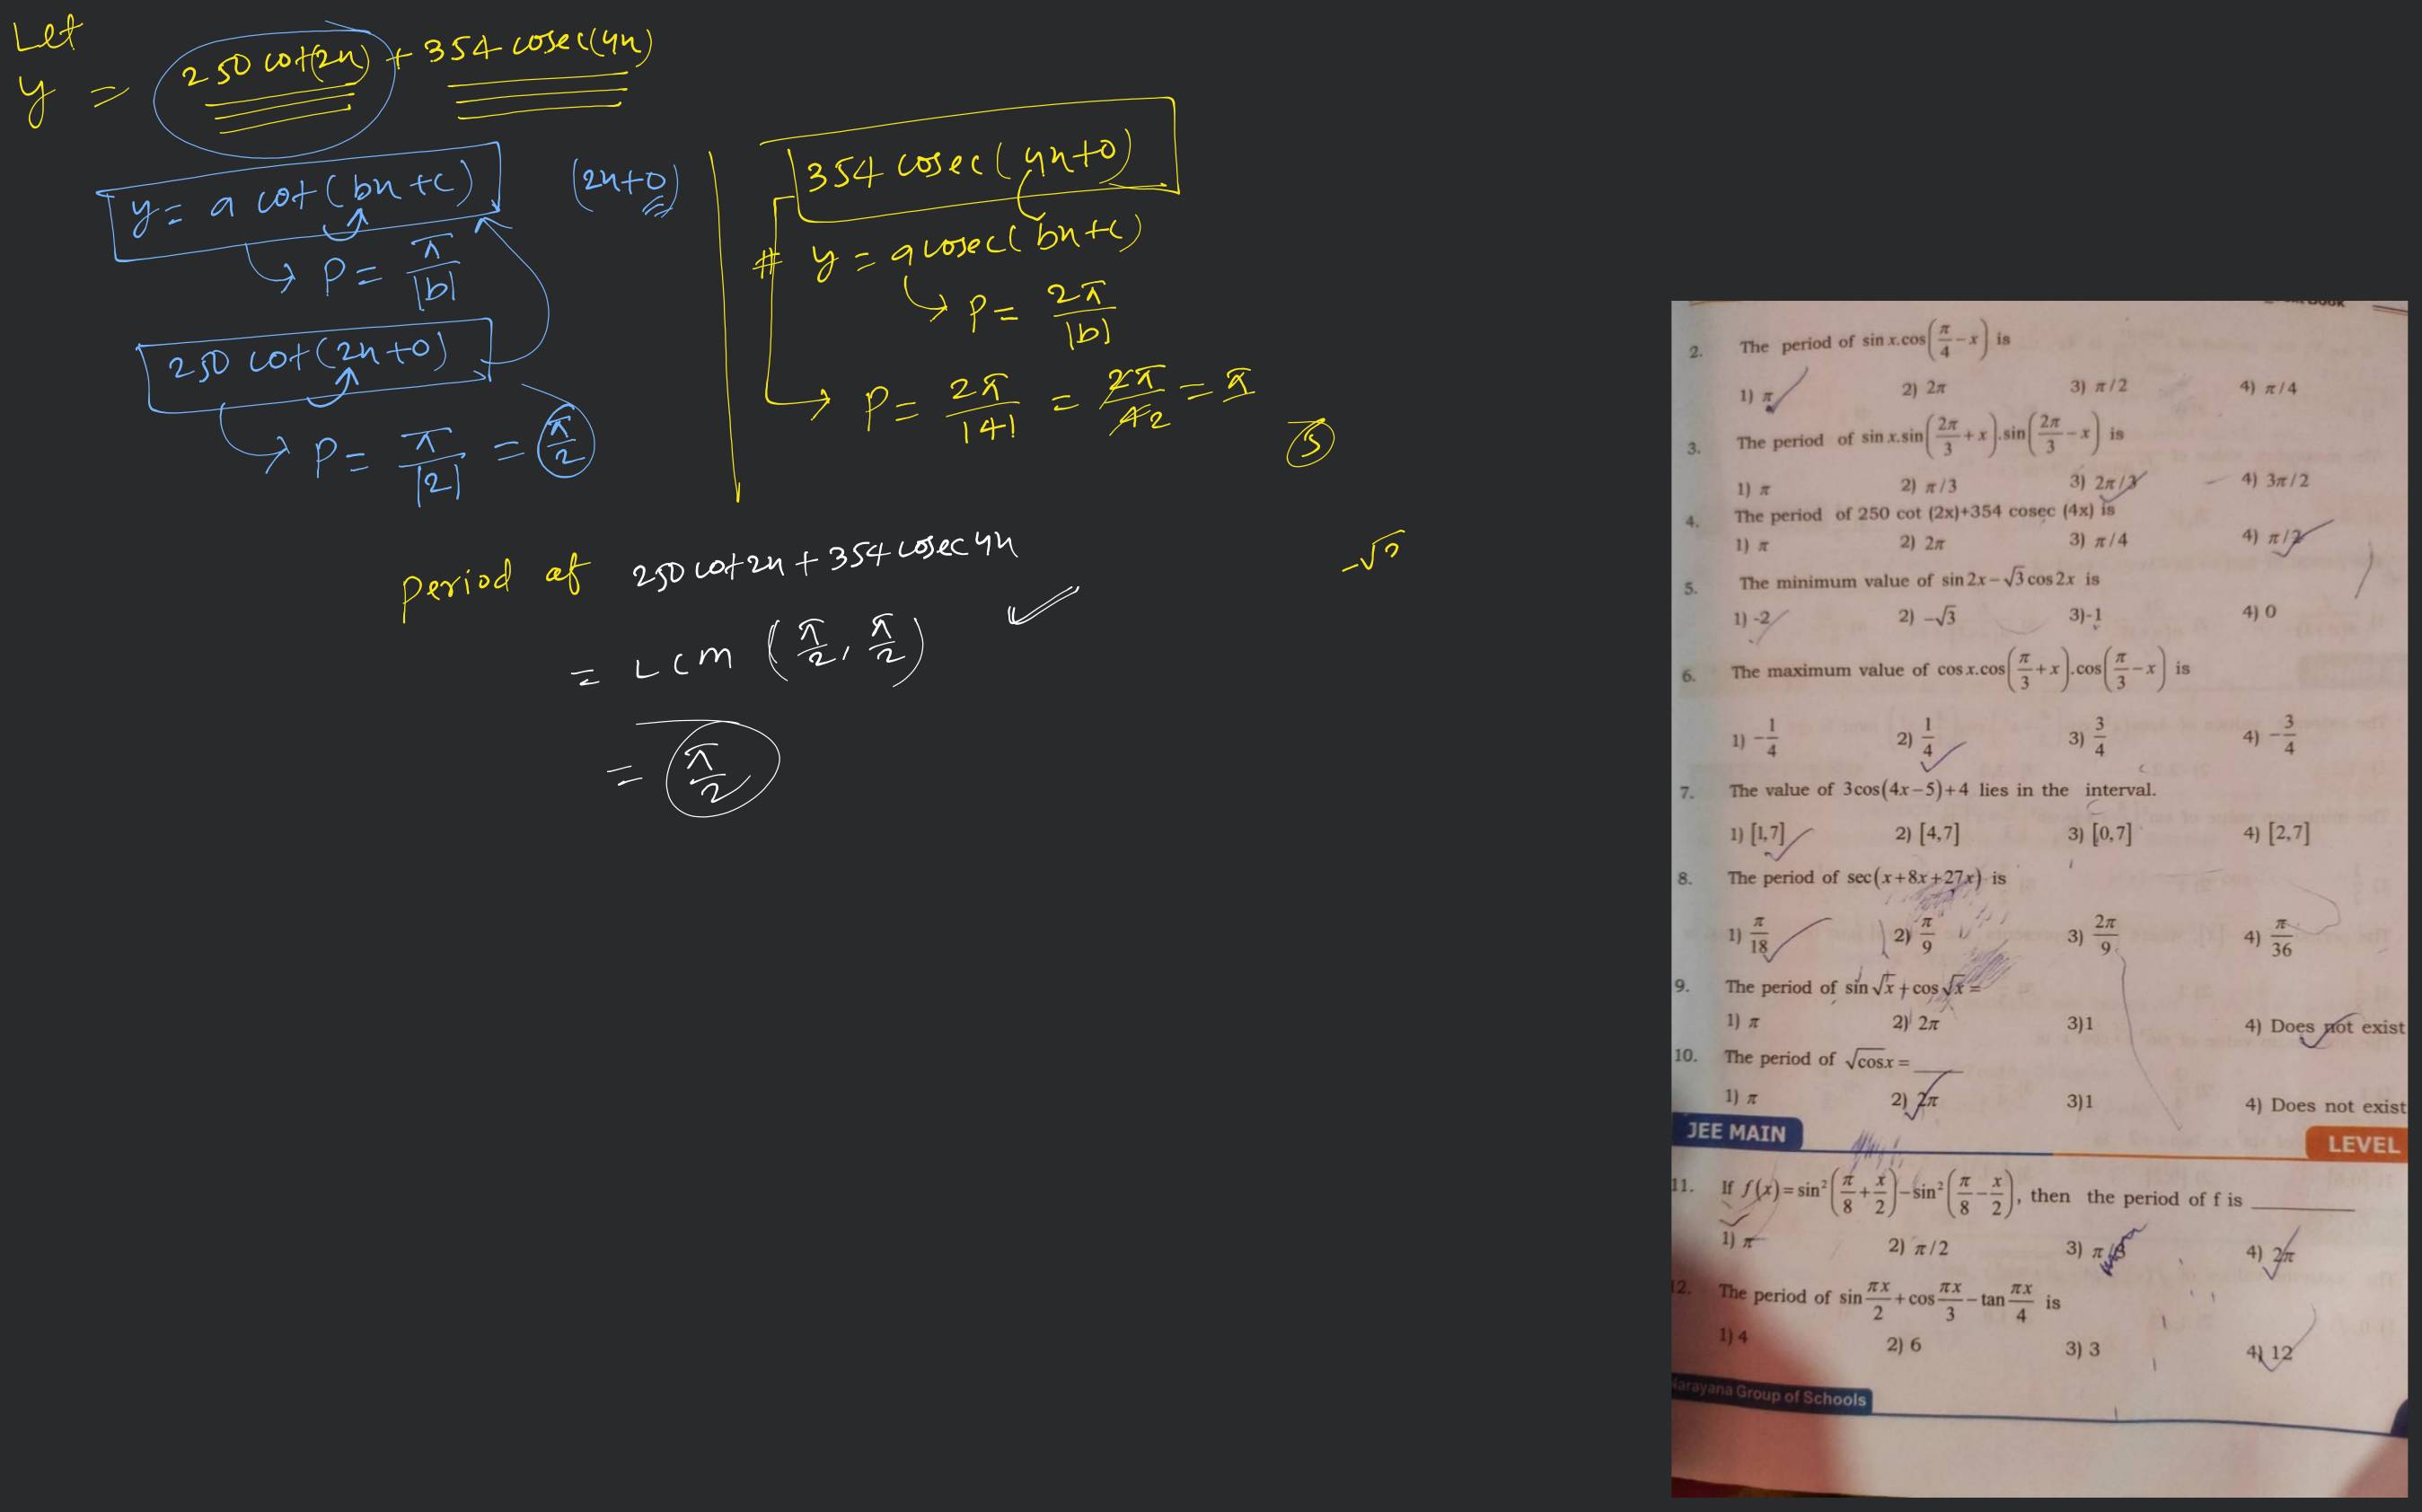 Let
y = 250 cot(2x) + 354 cosec(4x)
y = a cot(bx+c)
(2x+0)
→ P = π/|b|
250 cot(2x+0)
→ P = π/|2| = π/2
354 cosec(4x+0)
# y = a cosec(bx+c)
→ P = 2π/|b|
→ P = 2π/|4| = 2π/42 = π
5
Period of 250 cot2x + 354 cosec4x
= LCM (π/2, π/2)
= π/2
2. The period of sin x.cos(π/4 − x) is
1) π 2) 2π 3) π/2 4) π/4
3. The period of sin x.sin(2π/3 + x).sin(2π/3 − x) is
1) π 2) π/3 3) 2π/3 4) 3π/2
4. The period of 250 cot (2x)+354 cosec (4x) is
1) π 2) 2π 3) π/4 4) π/2
5. The minimum value of sin 2x − √3 cos 2x is
1) -2 2) −√3 3)-1 4) 0
6. The maximum value of cos x.cos(π/3 + x).cos(π/3 − x) is
1) −1/4 2) 1/4 3) 3/4 4) −3/4
7. The value of 3cos(4x−5)+4 lies in the interval.
1) [1,7] 2) [4,7] 3) [0,7] 4) [2,7]
8. The period of sec(x+8x+27x) is
1) π/18 2) π/9 3) 2π/9 4) π/36
9. The period of sin √x + cos √x =
1) π 2) 2π 3)1 4) Does not exist
10. The period of √cosx = ____
1) π 2) 2π 3)1 4) Does not exist
JEE MAIN LEVEL
11. If f(x) = sin²(π/8 + x/2) − sin²(π/8 − x/2), then the period of f is ____
1) π 2) π/2 3) π/3 4) 2π
12. The period of sin πx/2 + cos πx/3 − tan πx/4 is
1) 4 2) 6 3) 3 4) 12
Narayana Group of Schools